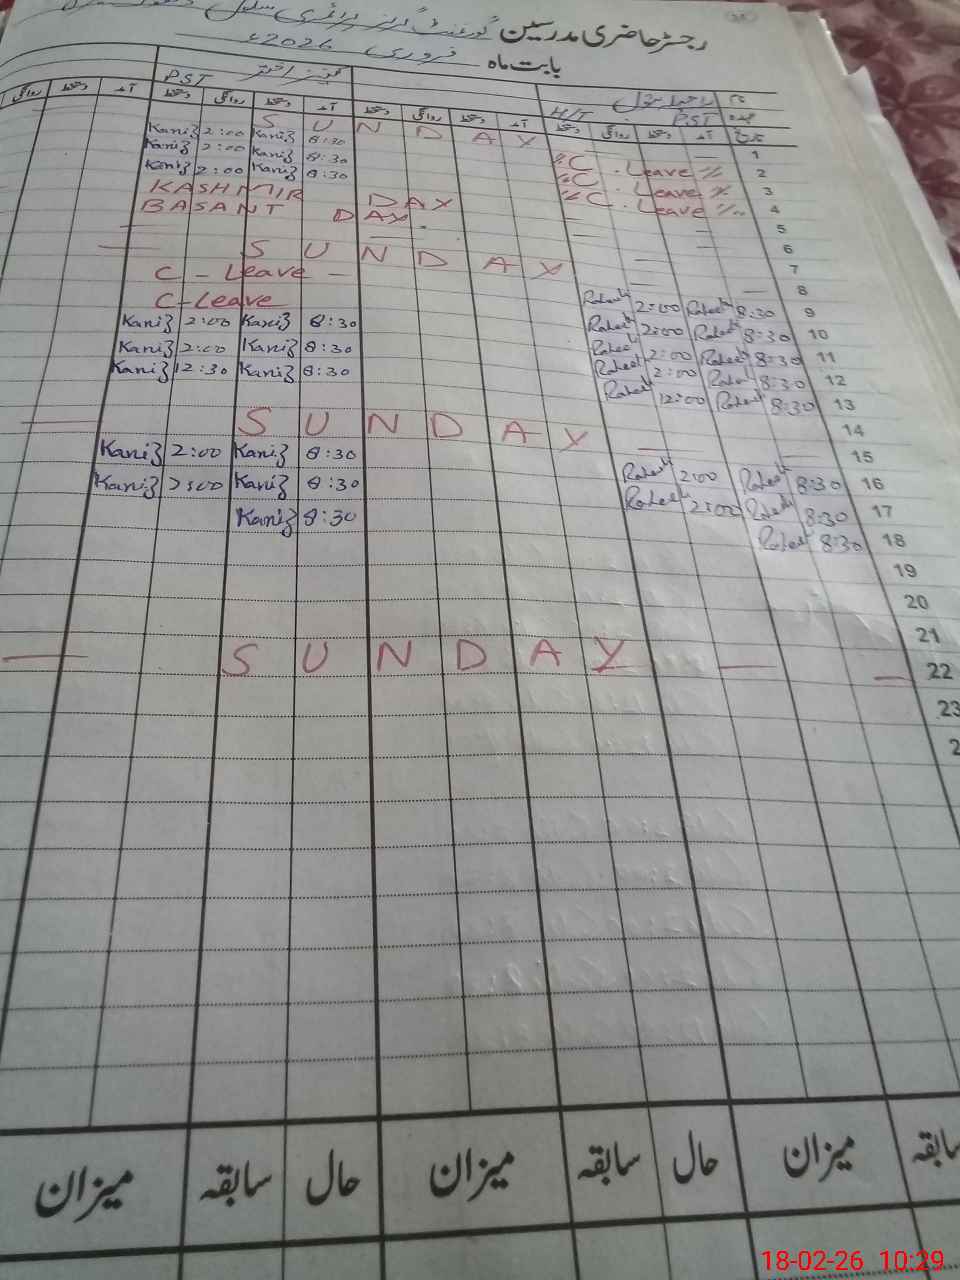 رجسٹر حاضری مدرسین گورنمنٹ گرلز پرائمری سکول
بابت ماہ فروری 2026ء
نام
عہدہ PST H/T کنیز اختر PST
تاریخ آمد دستخط روانگی دستخط آمد دستخط روانگی دستخط آمد دستخط روانگی دستخط آمد دستخط روانگی
1 S U N D A Y
2 "C - Leave Kaniz 2:00 Kaniz 8:30
3 "C - Leave Kaniz 2:00 Kaniz 8:30
4 "C - Leave Kaniz 2:00 Kaniz 8:30
5 KASHMIR DAY
6 BASANT DAY
7
8 S U N D A Y
9 Raheel 2:00 Raheel 8:30 C - Leave -
10 Raheel 2:00 Raheel 8:30 C - Leave
11 Raheel 2:00 Raheel 8:30 Kaniz 2:00 Kaniz 8:30
12 Raheel 2:00 Raheel 8:30 Kaniz 2:00 Kaniz 8:30
13 Raheel 12:00 Raheel 8:30 Kaniz 12:30 Kaniz 8:30
14
15 S U N D A Y
16 Raheel 2:00 Raheel 8:30 Kaniz 2:00 Kaniz 8:30
17 Raheel 2:00 Raheel 8:30 Kaniz 2:00 Kaniz 8:30
18 Raheel 8:30 Kaniz 8:30
19
20
21
22 S U N D A Y
23
2
سابقہ میزان حال سابقہ میزان حال سابقہ میزان
18-02-26 10:29